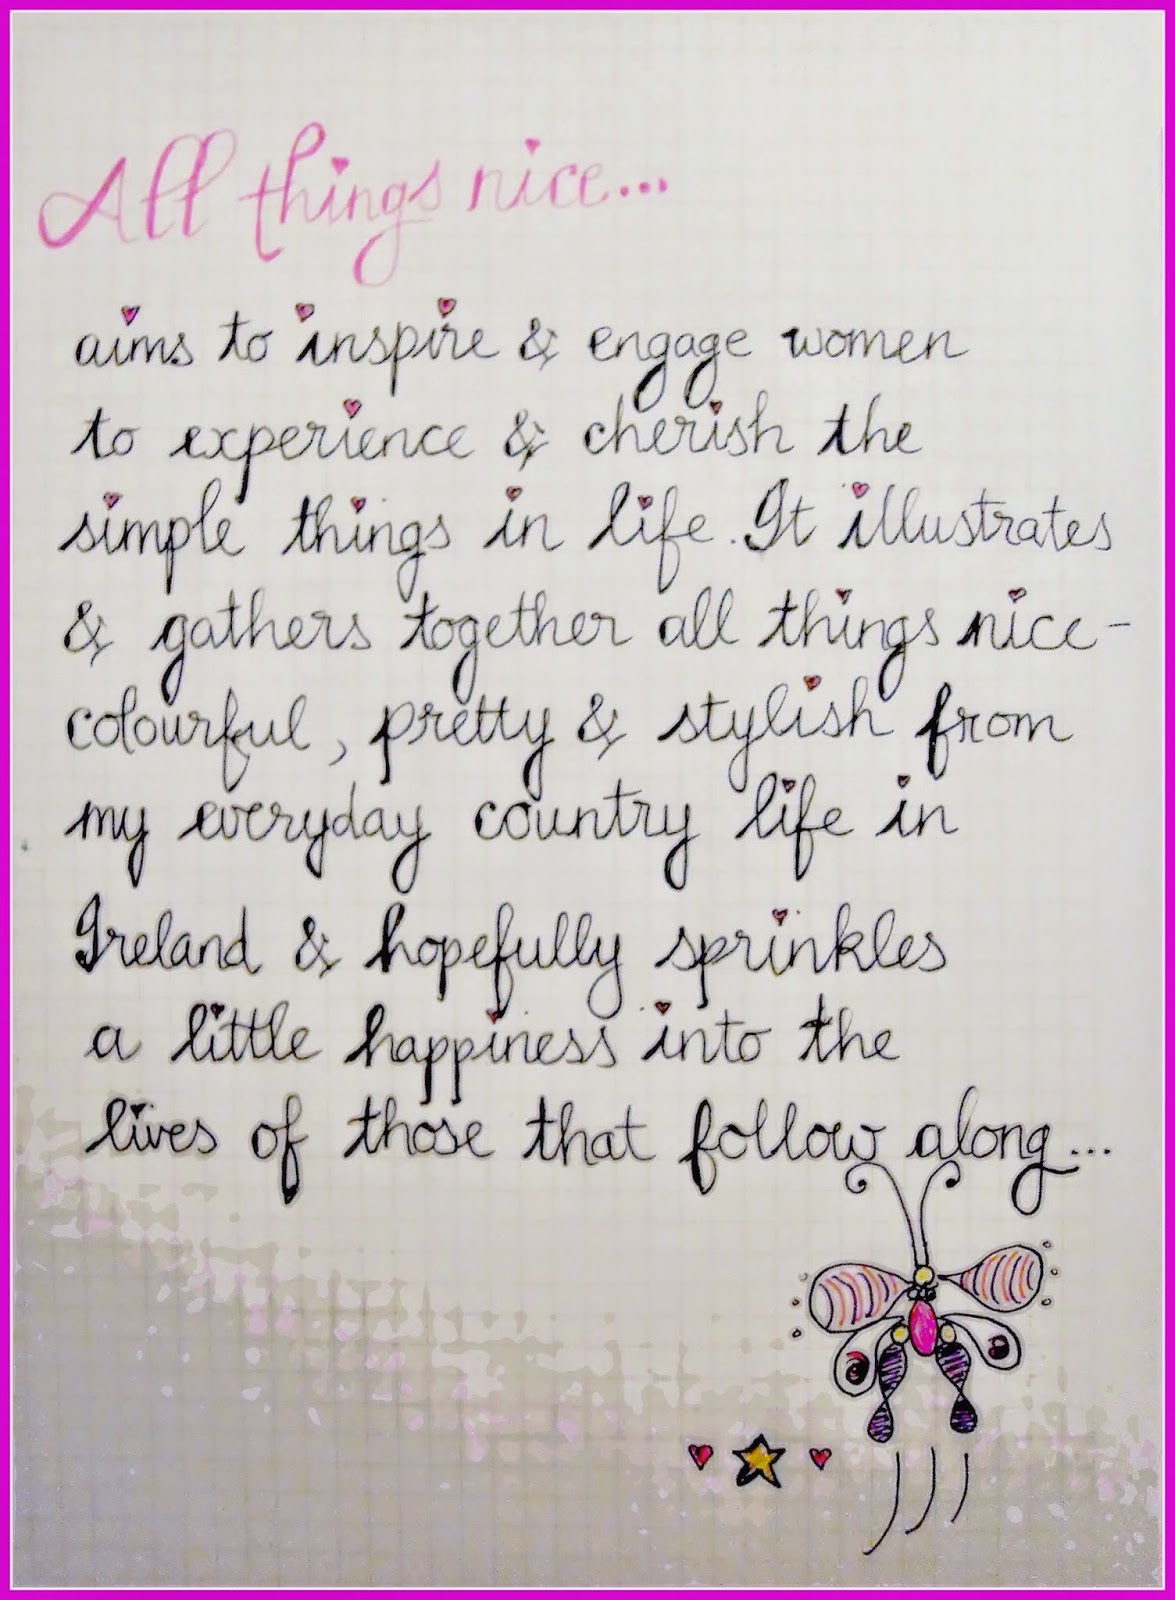 All things nice...
aims to inspire & engage women
to experience & cherish the
simple things in life. It illustrates
& gathers together all things nice-
colourful, pretty & stylish from
my everyday country life in
Ireland & hopefully sprinkles
a little happiness into the
lives of those that follow along...